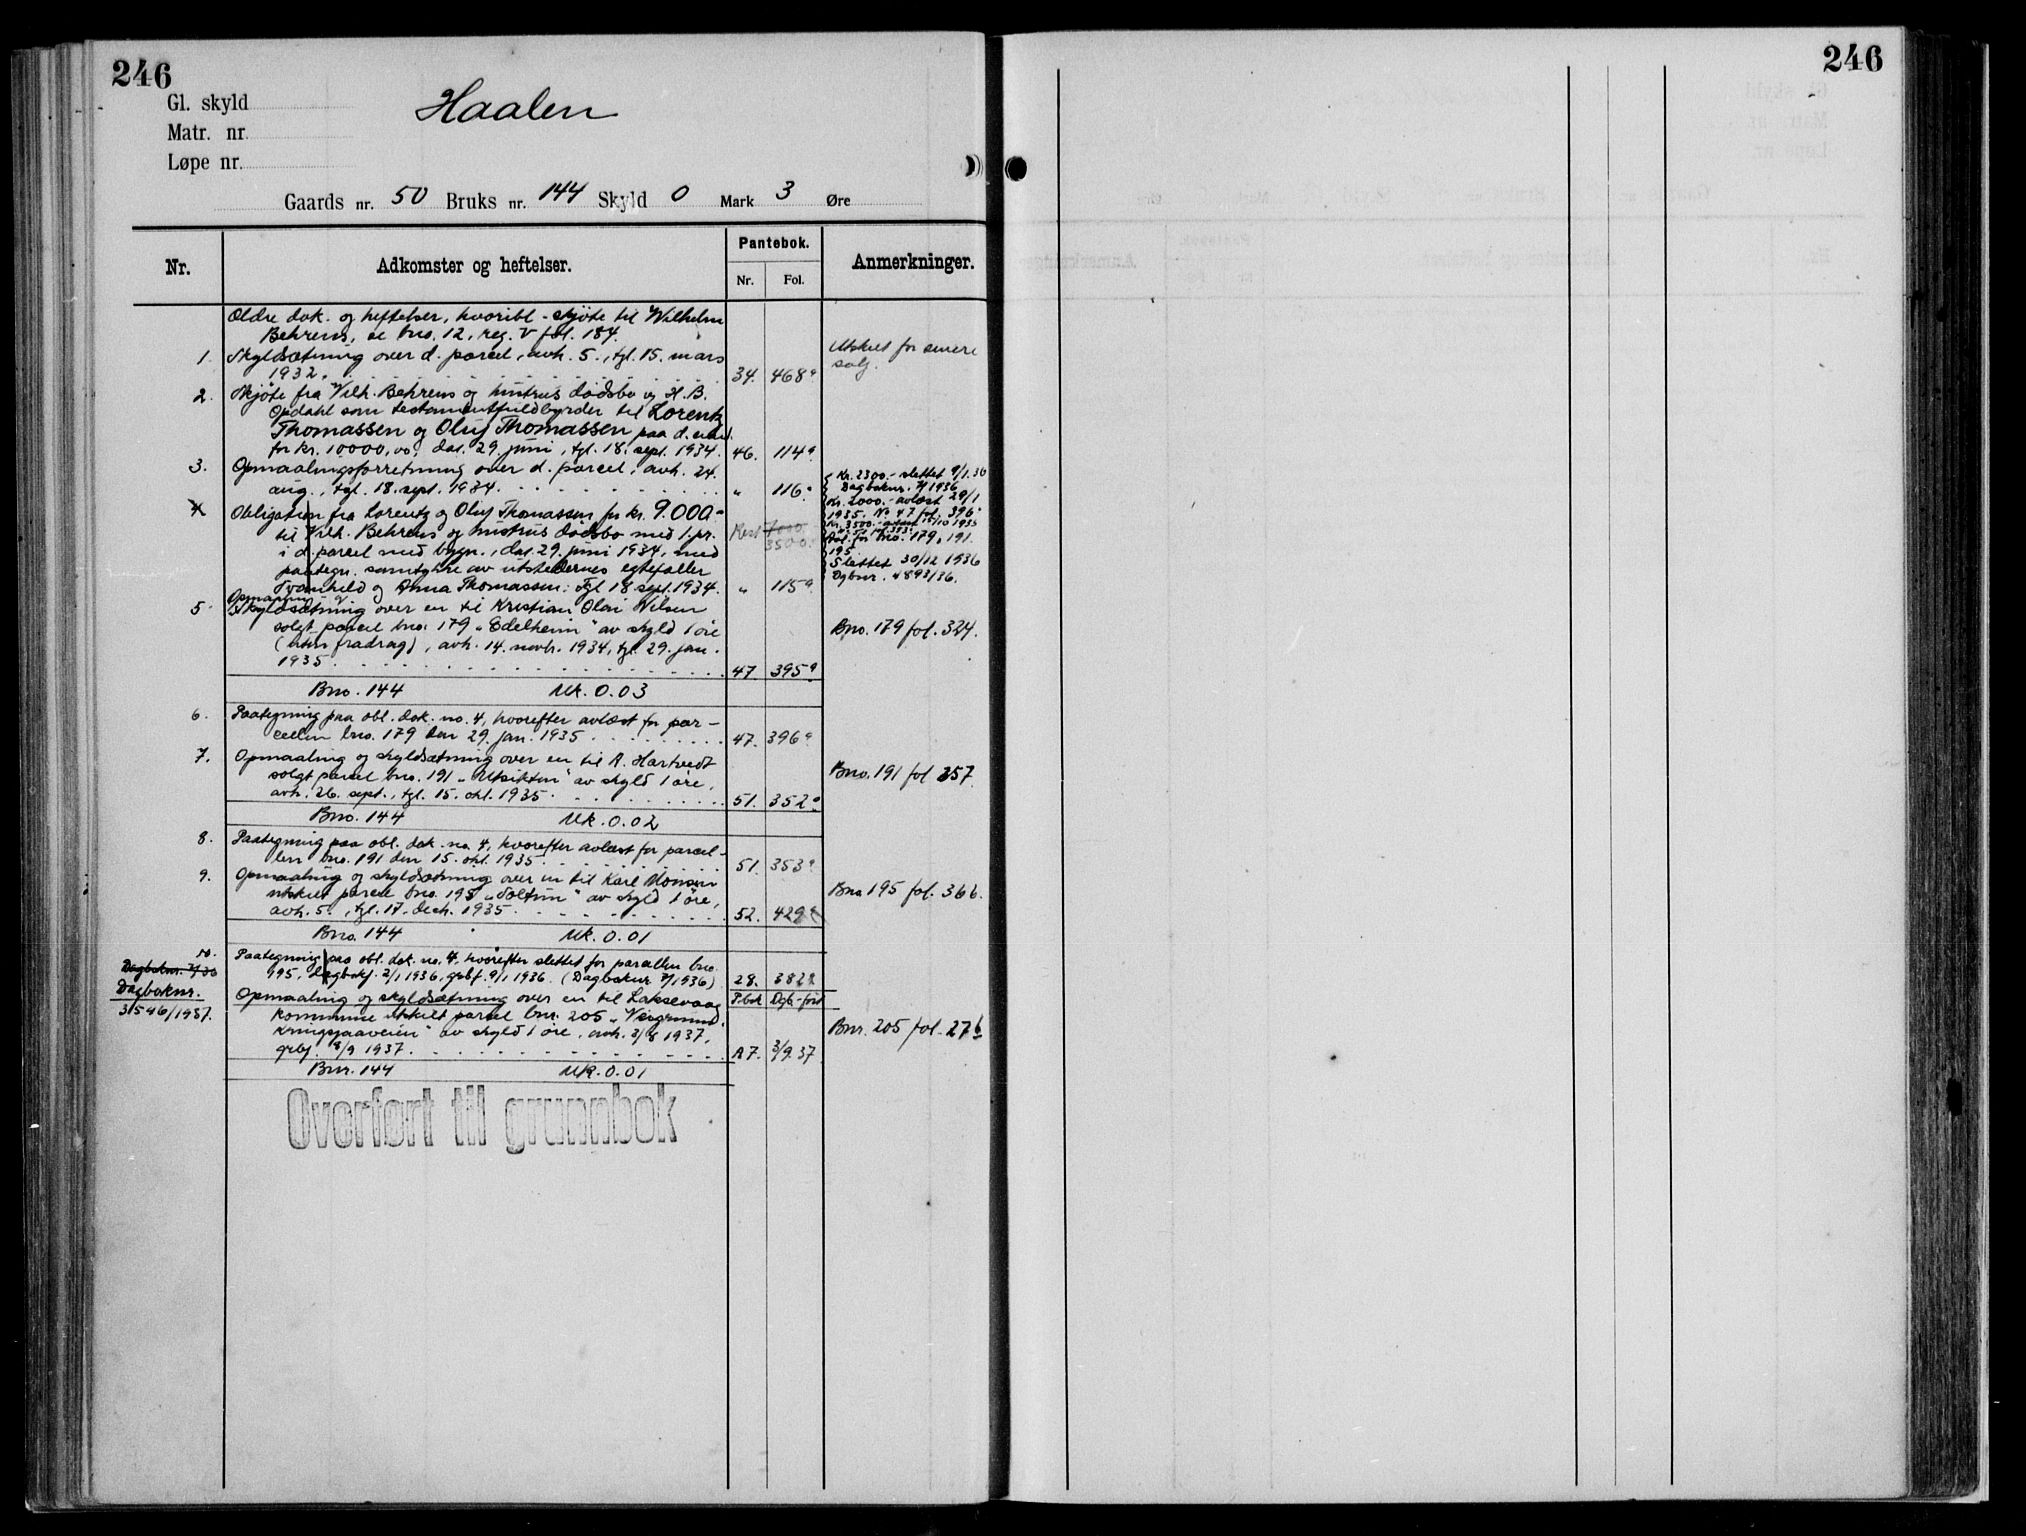 246
246
Gl. skyld
Haalen
Matr. nr.
Løpe nr.
Gaards nr. 50 Bruks nr. 144 Skyld 0 Mark 3 Øre
Nr.
Adkomster og heftelser.
Pantebok.
Nr. Fol.
Anmerkninger.
Ældre dok. og heftelser, hvoribl. skjøte til Wilhelm
Behrens, se bno. 12, reg. V fol. 184.
1. Skyldsætning over d. parcel, avh. 5., tgl. 15. mars
1932. 34. 468a
Utskilt for senere
salg.
2. Skjøte fra Wilh. Behrens og hustrus dødsbo og H. B.
Opdahl som testamentfuldbyrder til Lorentz
Thomassen og Oluf Thomassen paa d. eiend.
for kr. 10000,00, dat. 29. juni, tgl. 18. sept. 1934. 46. 114a
3. Opmaalingsforretning over d. parcel, avh. 24.
aug., tgl. 18. sept. 1934. " 116a
Kr. 2300.- slettet 9/1.36
Dagboknr. 7/1936
Kr. 2000.- avlæst 29/1
1935. No 47 fol. 396a
Kr. 3500.- 15/10 1935
for bno. 179, 191
195
Slettet 30/12 1936
Dgbnr. 4893/36.
4 Obligation fra Lorentz og Oluf Thomassen for kr. 9000.-
til Wilh. Behrens og hustrus dødsbo med 1. pr.
i d. parcel med bygn., dat. 29. juni 1934, med
paategn. samtykke av utstedernes egtefæller
Tvanhild og Anna Thomassen: Tgl 18. sept. 1934. " 115a
Rest 7000
3500.-
5. Opmaaling og
Skyldsætning over en til Kristian Olai Nilsen
solgt parcel bno. 179 "Edelheim" av skyld 1 øre
(uten fradrag), avh. 14. novbr. 1934, tgl. 29. jan.
1935 47 395a
Bno. 179 fol. 324.
Bno. 144 Mk. 0.03
6. Paategning paa obl. dok. no. 4, hvorefter avlæst for par-
cellen bno. 179 den 29. jan. 1935 47. 396a
7. Opmaaling og skyldsætning over en til A. Hartvedt
solgt parcel bno. 191 "Utsikten" av skyld 1 øre,
avh. 26. sept., tgl. 15. okt. 1935. 51. 352a
Bno. 191 fol 357.
Bno. 144 Mk. 0.02
8. Paategning paa obl. dok. no. 4, hvorefter avlæst for parcel-
len bno. 191 den 15. okt. 1935. 51. 353a
9. Opmaaling og skyldsætning over en til Karl Monsen
utskilt parcel bno. 195 "Soltun" av skyld 1 øre,
avh. 5., tgl. 17. decb. 1935. 52. 429a
Bno 195 fol. 366.
Bno. 144 Mk. 0.01
10. Paategning paa obl. dok. no. 4, hvorefter slettet for parcellen bno.
195, dagbokf. 2/1 1936, grbf. 9/1 1936. (Dagboknr. 7/1936) 28. 382a
Dagboknr. 7/36
Dagboknr.
3546/1937.
P.bok Dgb.-ført
Opmaaling og skyldsætning over en til Laksevaag
kommune utskilt parcel bnr. 205 "Veigrunn
Kringsjaaveien" av skyld 1 øre, avh. 2/8 1937,
grbf. 8/9 1937. A7. 3/9.37
Bnr. 205 fol. 276
Bnr. 144 Mk. 0.01
Overført til grunnbok